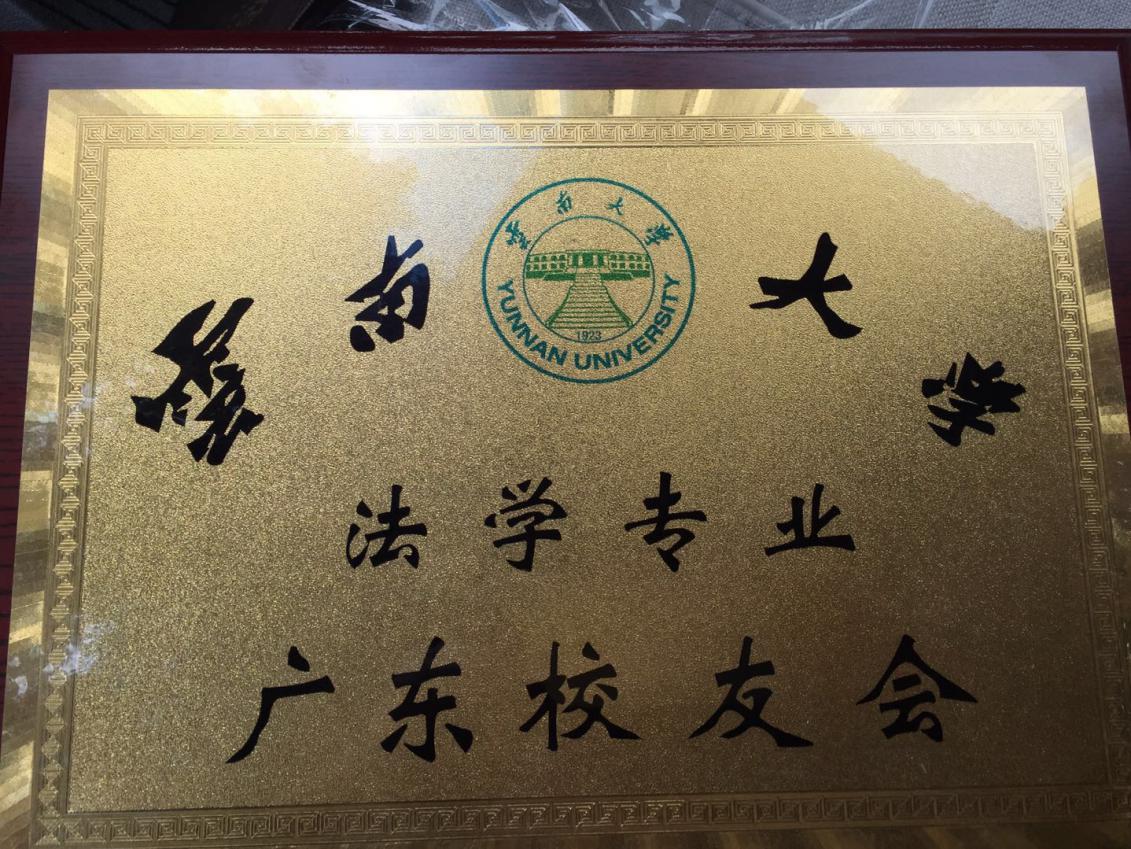 雲南大學
YUNNAN UNIVERSITY
1923
雲南大学
法学专业
广东校友会